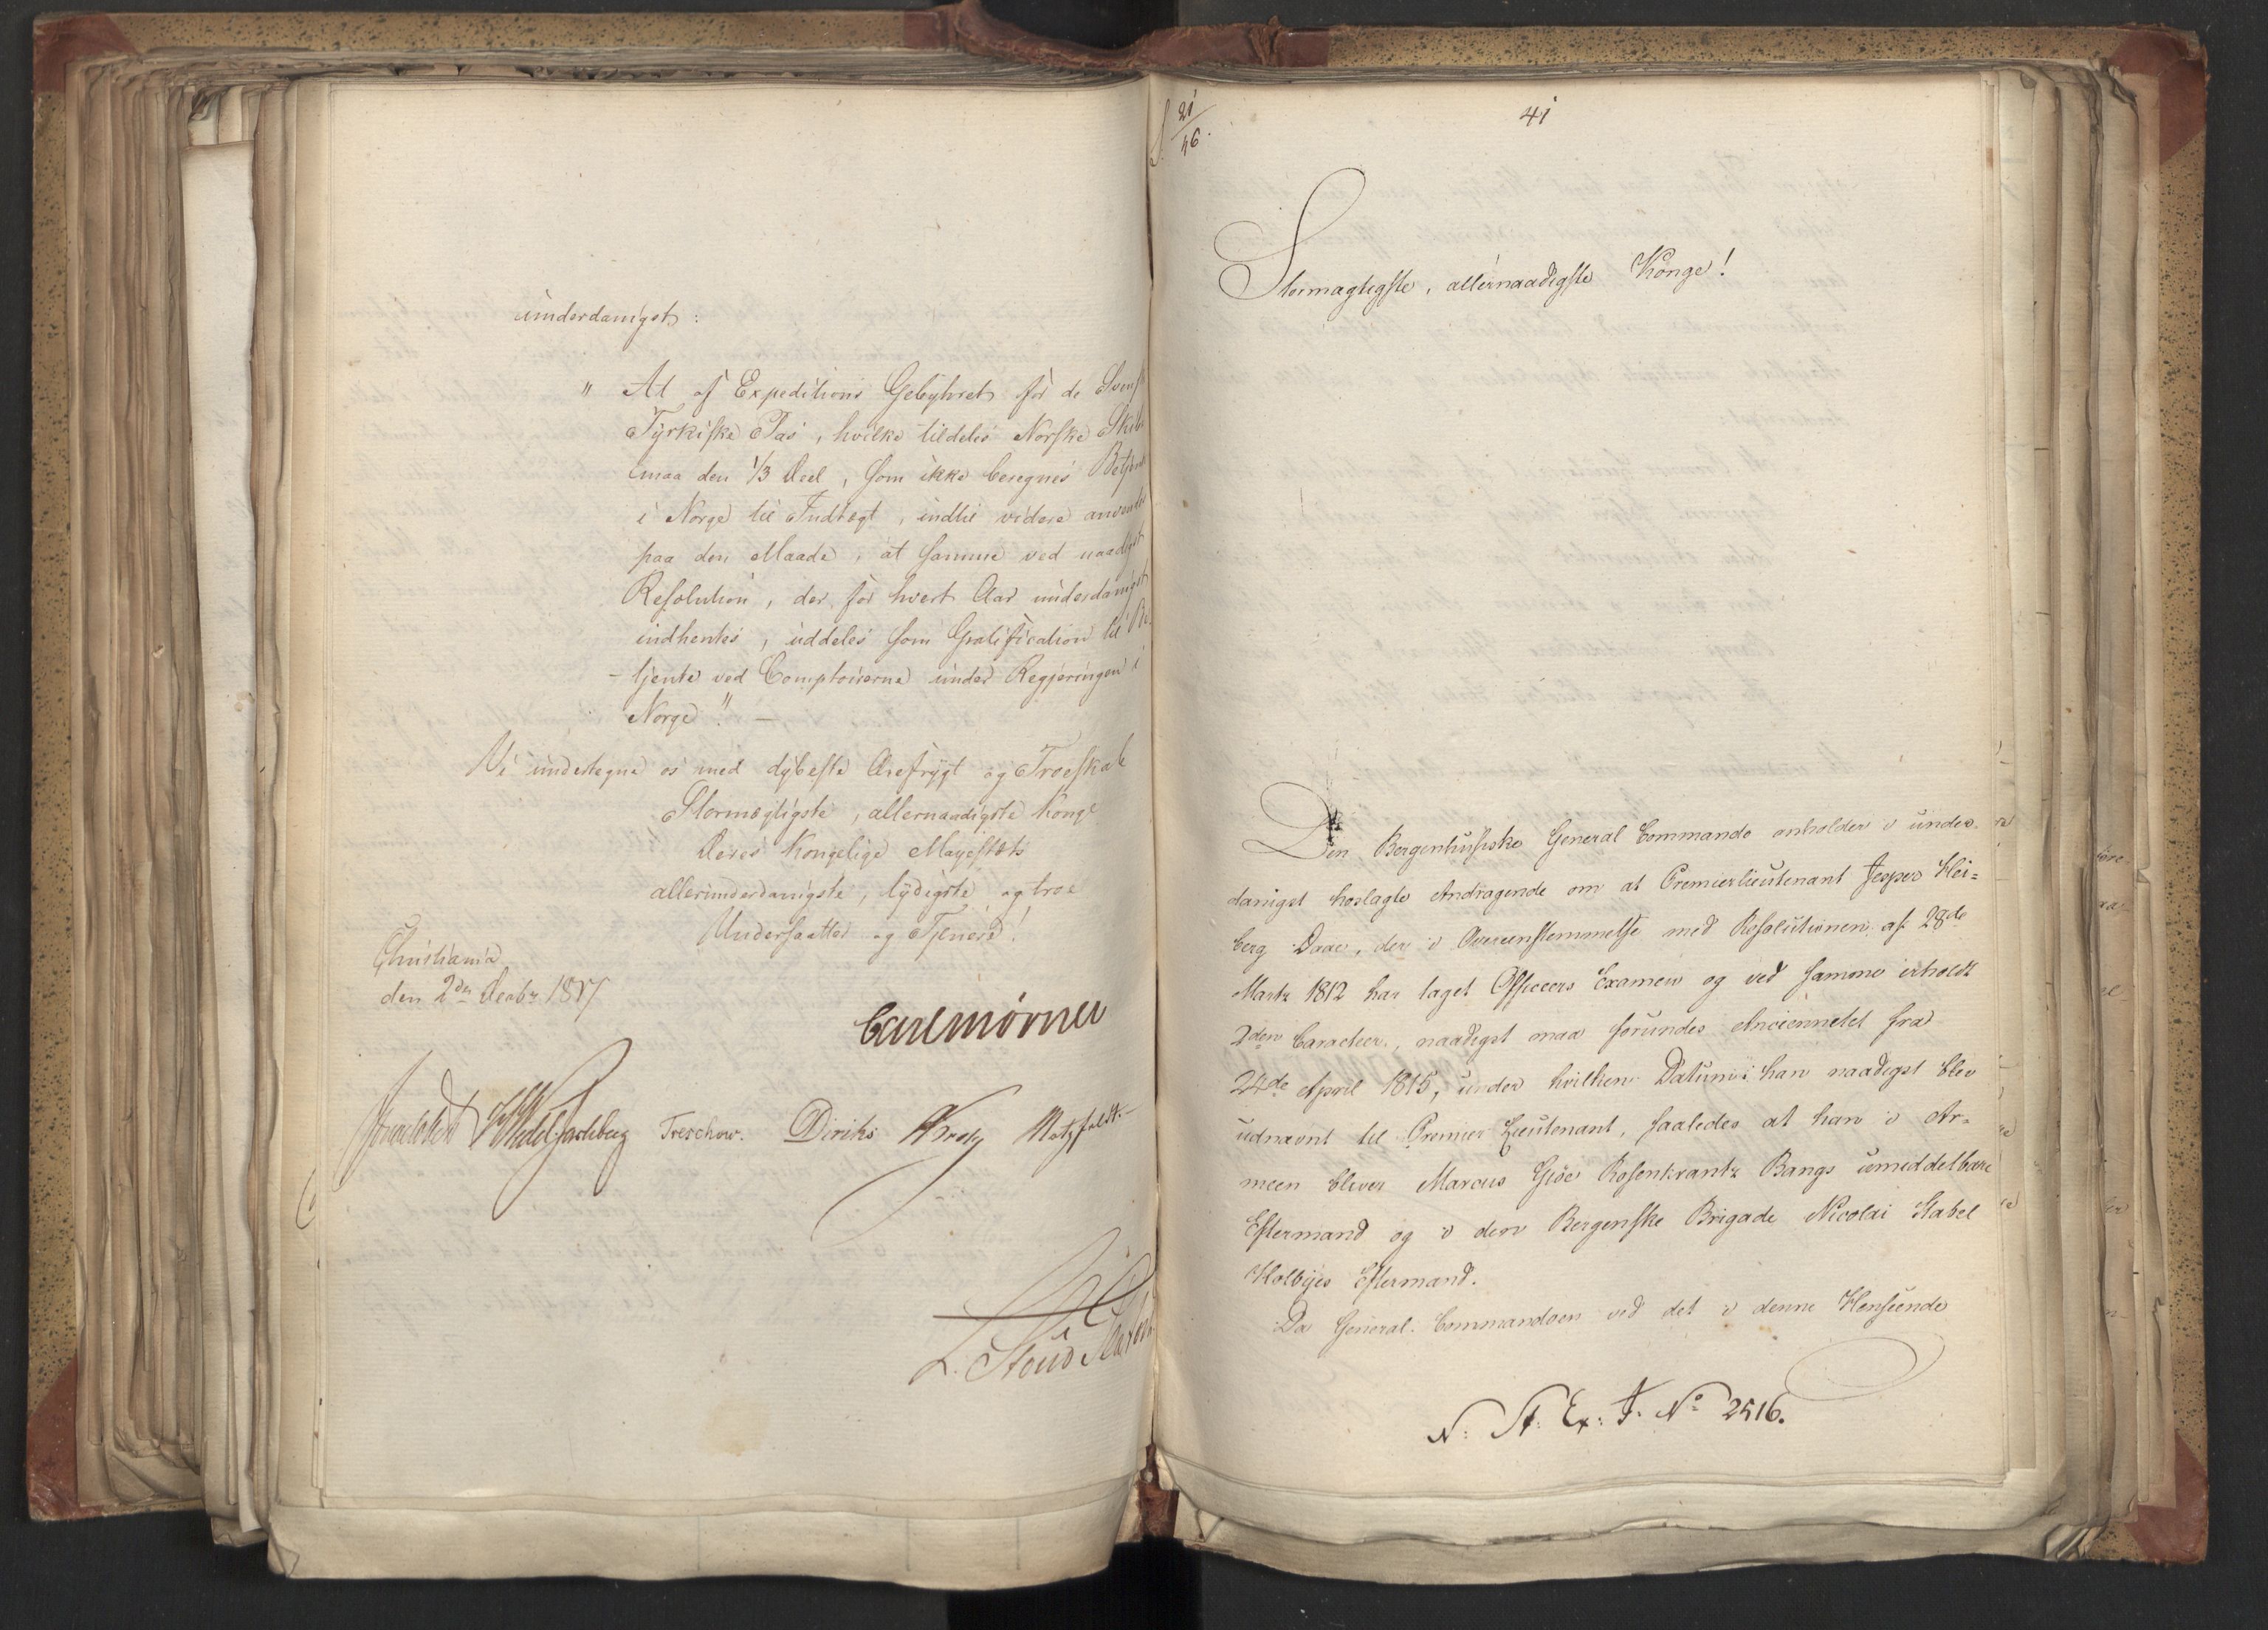 underdanigst:
" At af Expeditions Gebyhret for de Svensk
Tyrkiske Pas, hvilke tildeles Norske Skibe
maa den 1/3 Deel, som ikke beregnes Betjente
i Norge til Indtægt, indtil videre anvendes
paa den Maade, at samme ved naadigst
Resolution, der for hvert Aar underdanigst
indhentes, uddeles som Gratification til Be-
-tjente ved Comptoirerne under Regjeringen i
Norge". —
Vi undertegne os med dybeste Ærefrygt og Troeskab
Stormægtigste, allernaadigste Konge
Deres Kongelige Majestæts
allerunderdanigste, lydigste og troe
Undersaatter og Tjenere!
Christiania
den 2den Decbr 1817
Carl Mörner
Wedel Jarlsberg Treschow. Diriks Krog Motzfeldt.
L. Stoud Platou
21/46.
41
Stormægtigste, allernaadigste Konge!
Den Bergenhusiske General Commando anholder i under-
danigst hoslagte Andragende om at Premierlieutenant Jesper Hei=
berg Daae, der i Overeenstemmelse med Resolutionen af 28de
Martz 1812 har taget Officeers Examen og ved samme erholdt
2den Caracteer, naadigst maa forundes Anciennetet fra
24de April 1815, under hvilken Datum han naadigst blev
udnævnt til Premier Lieutenant, saaledes at han i Ar-
meen bliver Marcus Giøe Rosenkrantz Bangs umiddelbare
Eftermand og i den Bergenske Brigade Nicolai Stabel
Holbyes Eftermand.
Da General Commandoen ved det i denne Henseende
N. St. Ex: J. No 2516.